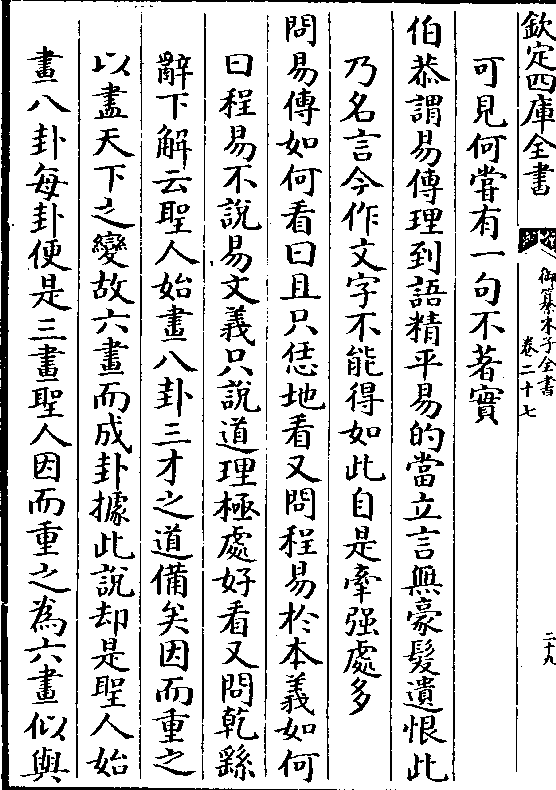 欽定四庫全書
御纂朱子全書
卷二十七
二十九
可見何嘗有一句不著實
伯恭謂易傳理到語精平易的當立言無豪髮遺恨此
乃名言今作文字不能得如此自是牽强處多
問易傳如何看曰且只恁地看又問程易於本義如何
曰程易不說易文義只說道理極處好看又問乾繇
辭下解云聖人始畫八卦三才之道備矣因而重之
以盡天下之變故六畫而成卦據此說却是聖人始
畫八卦每卦便是三畫聖人因而重之為六畫似與